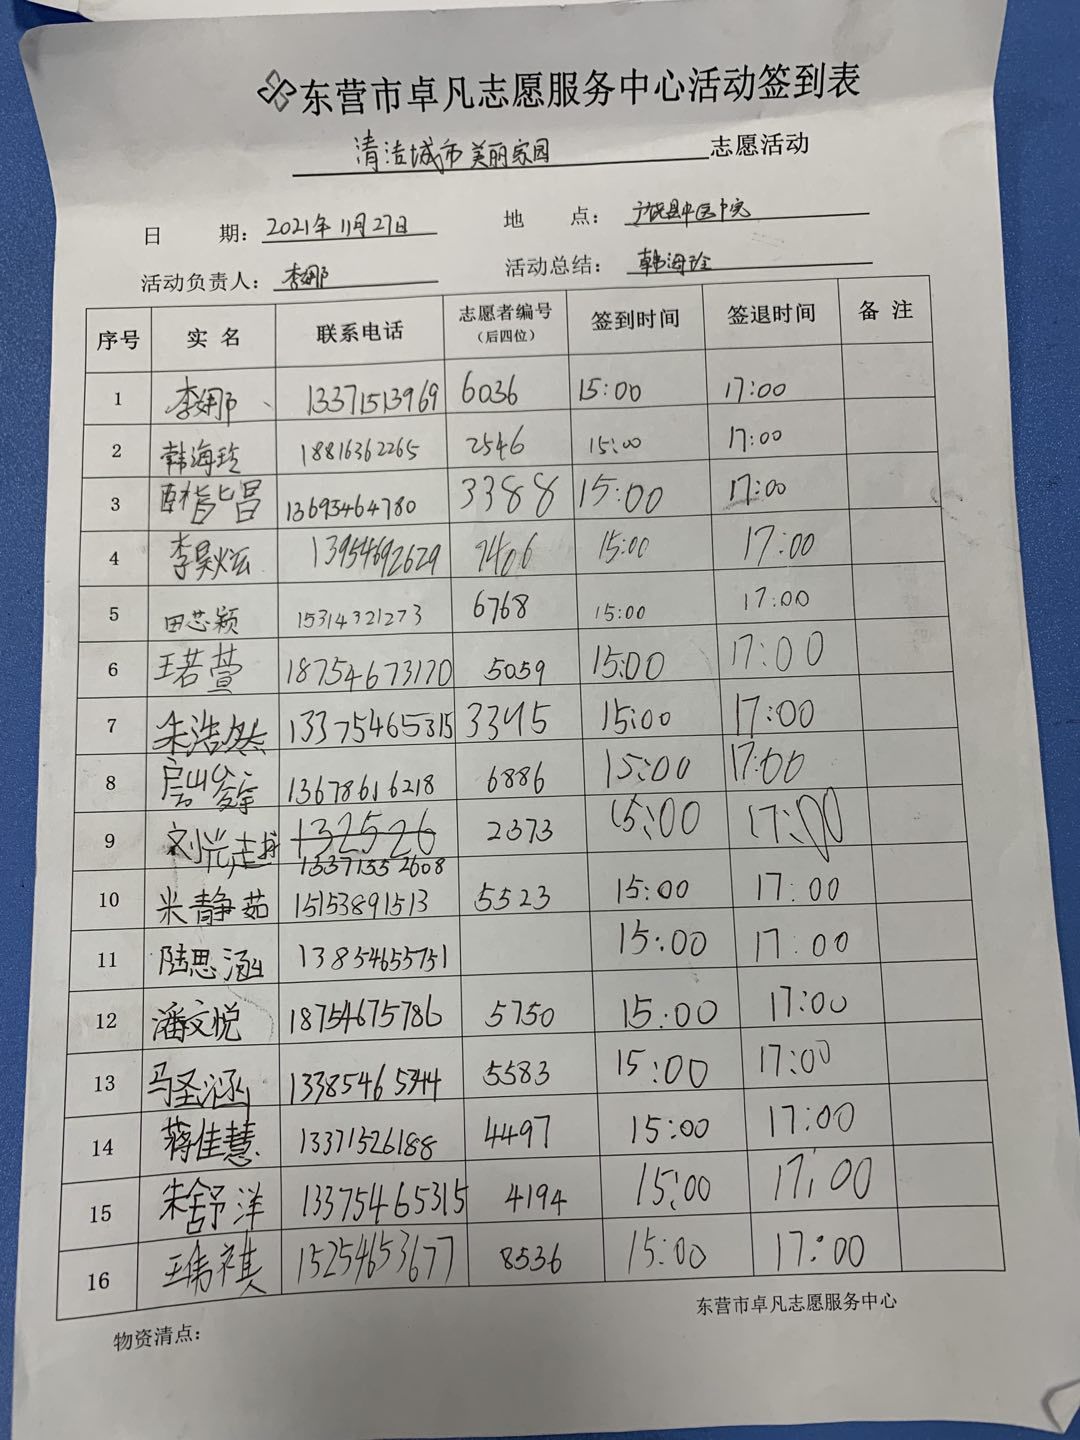 东营市卓凡志愿服务中心活动签到表
清洁城市 美丽家园 志愿活动
日 期: 2021年11月27日 地 点: 广饶县中医院
活动负责人: 李娜 活动总结: 韩海玲
序号 实名 联系电话 志愿者编号(后四位) 签到时间 签退时间 备注
1 李娜 13371513969 6036 15:00 17:00
2 韩海玲 18816362265 2546 15:00 17:00
3 13693464780 3388 15:00 17:00
4 李昊炫 13954692629 7406 15:00 17:00
5 田芯颖 15314321273 6768 15:00 17:00
6 王若萱 18754673170 5059 15:00 17:00
7 朱浩然 13375465315 3395 15:00 17:00
8 13678616218 6886 15:00 17:00
9 132526 2373 15:00 17:00
13371552608
10 米静茹 15153891513 5523 15:00 17:00
11 陆思涵 13854655751 15:00 17:00
12 潘文悦 18754675786 5750 15:00 17:00
13 马圣涵 13385465344 5583 15:00 17:00
14 蒋佳慧 13371526188 4497 15:00 17:00
15 朱舒洋 13375465315 4194 15:00 17:00
16 王祎祺 15254653677 8536 15:00 17:00
东营市卓凡志愿服务中心
物资清点: